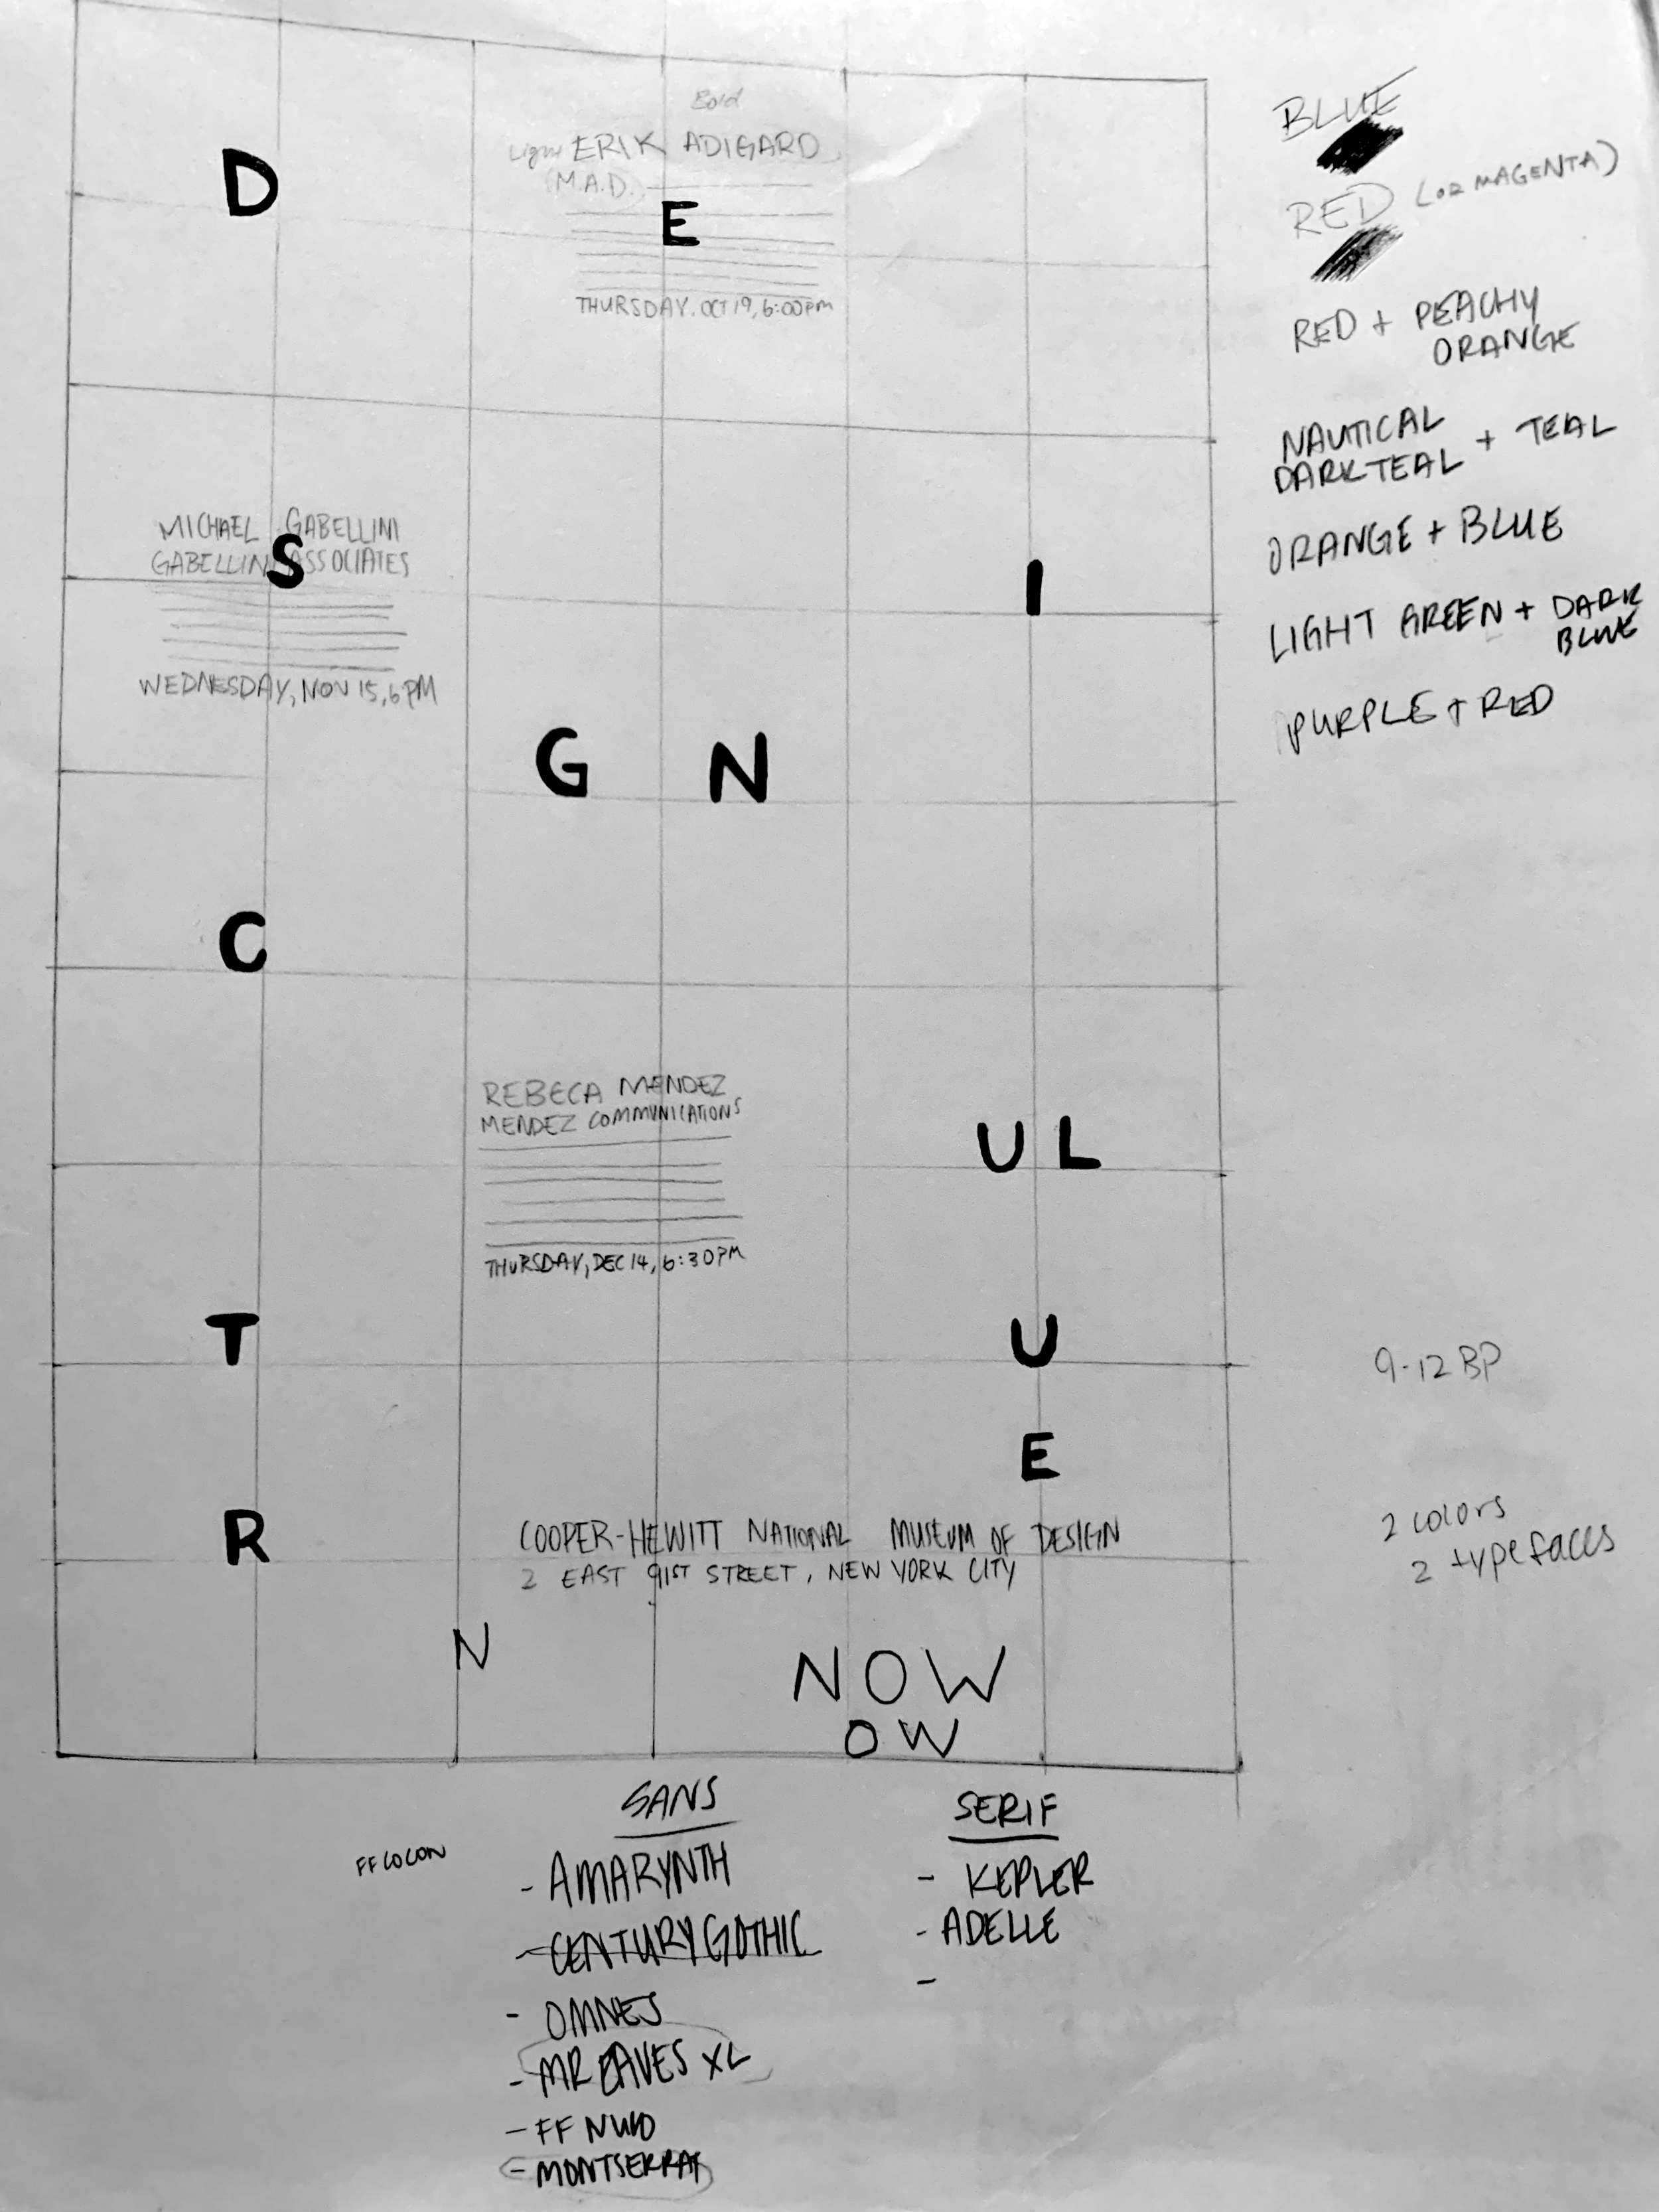 Bold
Light ERIK ADIGARD
(M.A.D.)
D
E
THURSDAY. OCT 19, 6:00PM
MICHAEL GABELLINI
GABELLINI ASSOCIATES
S
I
WEDNESDAY, NOV 15, 6PM
G N
C
REBECA MENDEZ
MENDEZ COMMUNICATIONS
U L
THURSDAY, DEC 14, 6:30PM
T
U
E
R
COOPER-HEWITT NATIONAL MUSEUM OF DESIGN
2 EAST 91ST STREET, NEW YORK CITY
N
NOW
OW
BLUE
RED (OR MAGENTA)
RED + PEACHY
ORANGE
NAUTICAL
DARK TEAL + TEAL
ORANGE + BLUE
LIGHT GREEN + DARK
BLUE
PURPLE + RED
9-12 BP
2 colors
2 typefaces
FF COCON
SANS
- AMARYNTH
- CENTURY GOTHIC
- OMNES
- MR EAVES XL
- FF NUVO
- MONTSERRAT
SERIF
- KEPLER
- ADELLE
-